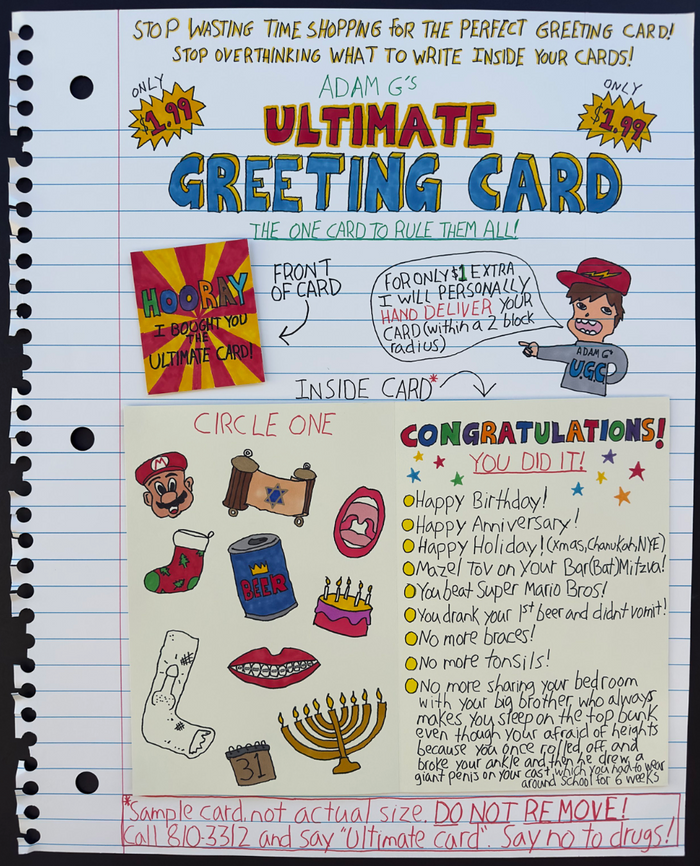 STOP WASTING TIME SHOPPING FOR THE PERFECT GREETING CARD!
STOP OVERTHINKING WHAT TO WRITE INSIDE YOUR CARDS!
ADAM G'S
ONLY
$1.99
ONLY
$1.99
ULTIMATE
GREETING CARD
THE ONE CARD TO RULE THEM ALL!
HOORAY
I BOUGHT YOU
THE
ULTIMATE CARD!
FRONT
OF CARD
FOR ONLY $1 EXTRA
I WILL PERSONALLY
HAND DELIVER YOUR
CARD (within a 2 block
radius)
ADAM G'S
U.G.C
INSIDE CARD*
CIRCLE ONE
M
BEER
31
CONGRATULATIONS!
YOU DID IT!
Happy Birthday!
Happy Anniversary!
Happy Holiday! (Xmas, Chanukah, NYE)
Mazel Tov on Your Bar(Bat)Mitzva!
You beat Super Mario Bros!
You drank your 1st beer and didnt vomit!
No more braces!
No more tonsils!
No more sharing your bedroom
with your big brother, who always
makes you sleep on the top bunk
even though your afraid of heights
because you once rolled off and
broke your ankle and then he drew a
giant penis on your cast, which you had to wear
around school for 6 weeks
*Sample card, not actual size. DO NOT REMOVE!
Call 810-3312 and say "Ultimate card". Say no to drugs!